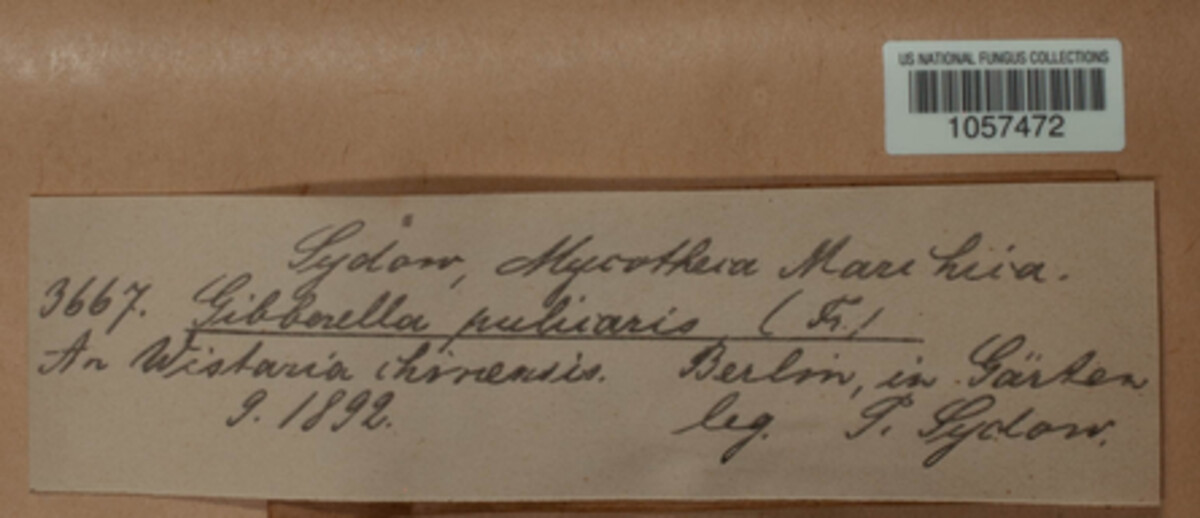 US NATIONAL FUNGUS COLLECTIONS
1057472
Sydow, Mycotheca Marchica.
3667. Gibberella pulicaris (Fr.)
An Wistaria chinensis. Berlin, in Gärten
9. 1892. leg. P. Sydow.